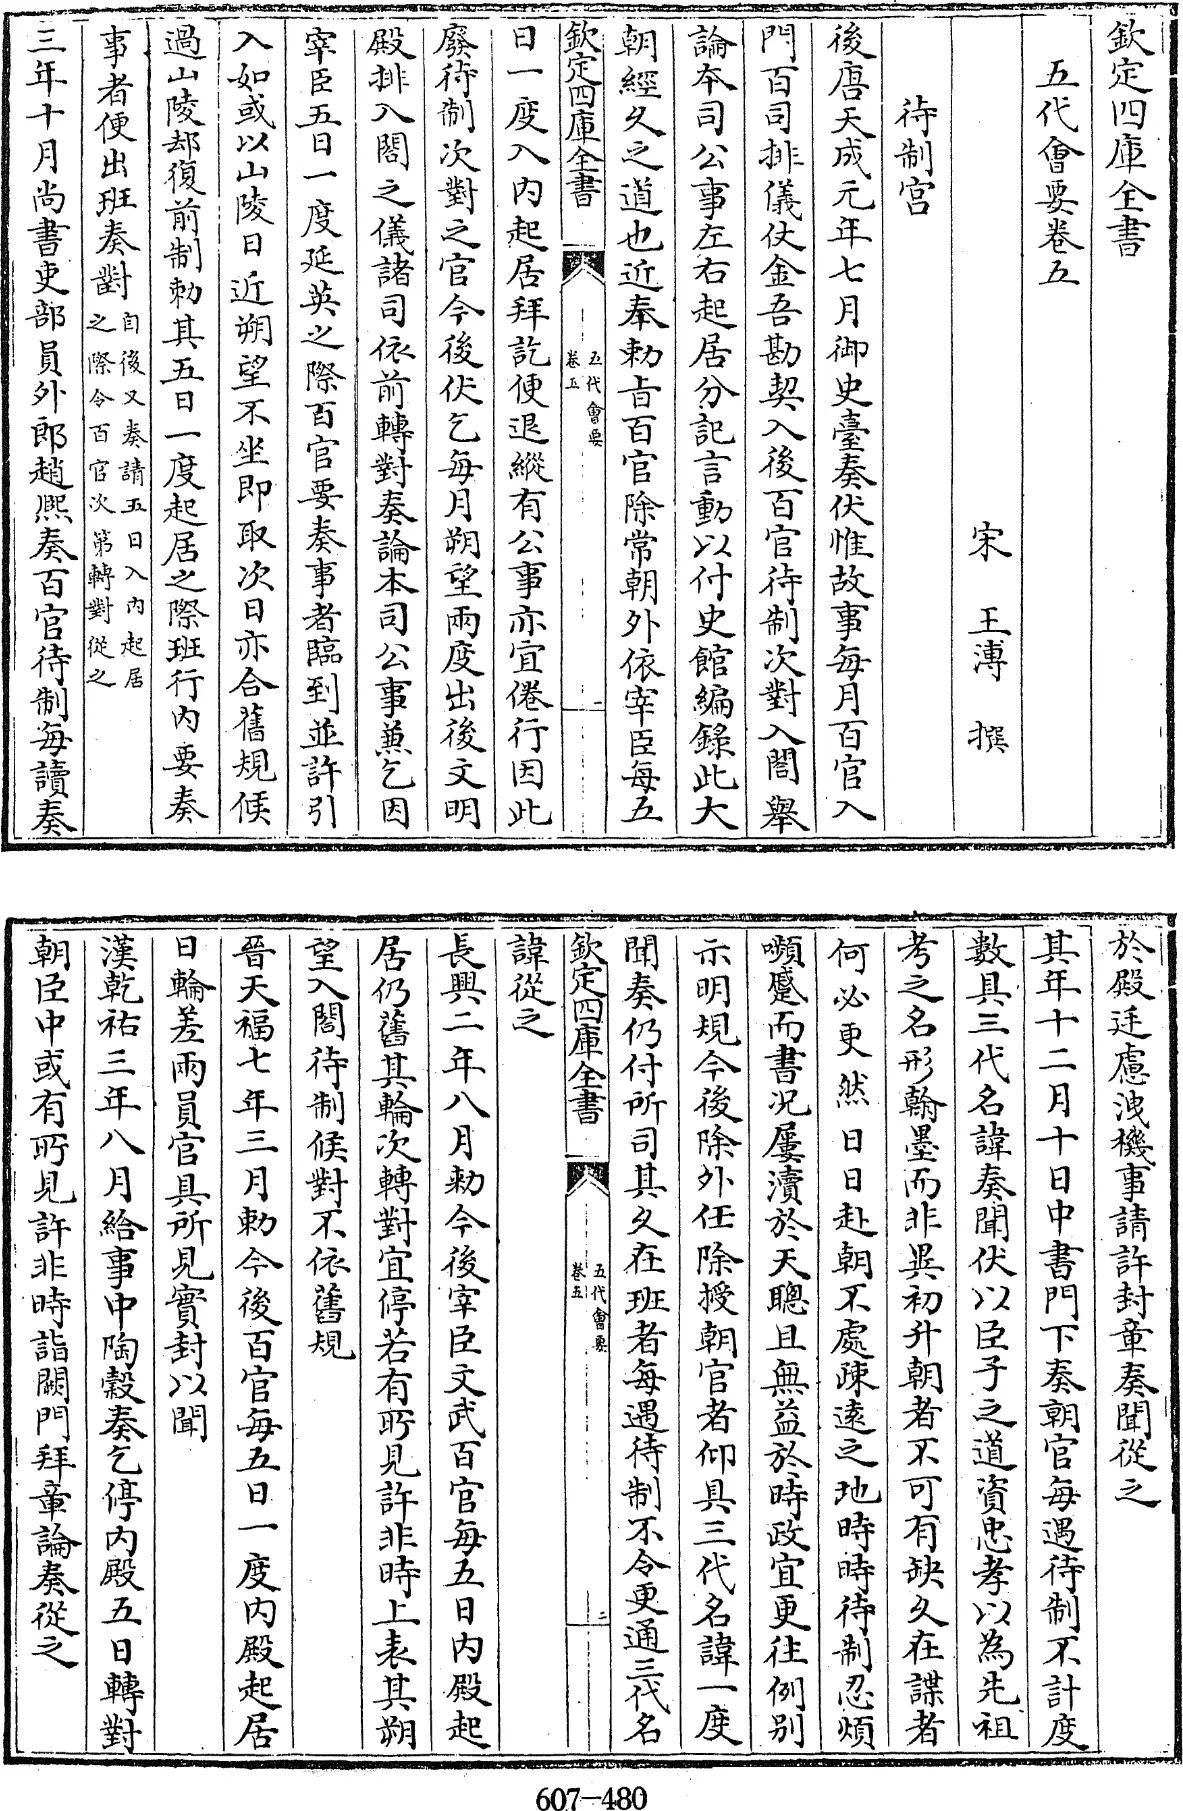 欽定四庫全書
五代會要卷五
宋　王溥　撰
待制官
後唐天成元年七月御史臺奏伏惟故事每月百官入
門百司排儀仗金吾勘契入後百官待制次對入閤舉
論本司公事左右起居分記言動以付史館編錄此大
朝經久之道也近奉勅旨百官除常朝外依宰臣每五
欽定四庫全書
五代會要
卷五
一
日一度入内起居拜訖便退縱有公事亦宜倦行因此
廢待制次對之官今後伏乞每月朔望兩度出後文明
殿排入閤之儀諸司依前轉對奏論本司公事兼乞因
宰臣五日一度延英之際百官要奏事者臨到並許引
入如或以山陵日近朔望不坐即取次日亦合舊規候
過山陵却復前制勅其五日一度起居之際班行内要奏
事者便出班奏對自後又奏請五日入内起居
之際令百官次第轉對從之
三年十月尚書吏部員外郎趙熈奏百官待制每讀奏
於殿廷慮洩機事請許封章奏聞從之
其年十二月十日中書門下奏朝官每遇待制不計度
數具三代名諱奏聞伏以臣子之道資忠孝以為先祖
考之名形翰墨而非異初升朝者不可有缺久在謀者
何必更然日日赴朝不處疎遠之地時時待制忍煩
嚬蹙而書况屢瀆於天聰且無益於時政宜更往例别
示明規今後除外任除授朝官者仰具三代名諱一度
聞奏仍付所司其久在班者每遇待制不令更通三代名
欽定四庫全書
五代會要
卷五
二
諱從之
長興二年八月勅今後宰臣文武百官每五日内殿起
居仍舊其輪次轉對宜停若有所見許非時上表其朔
望入閤待制候對不依舊規
晉天福七年三月勅今後百官每五日一度内殿起居
日輪差兩員官具所見實封以聞
漢乾祐三年八月給事中陶穀奏乞停内殿五日轉對
朝臣中或有所見許非時詣閤門拜章論奏從之
607-480